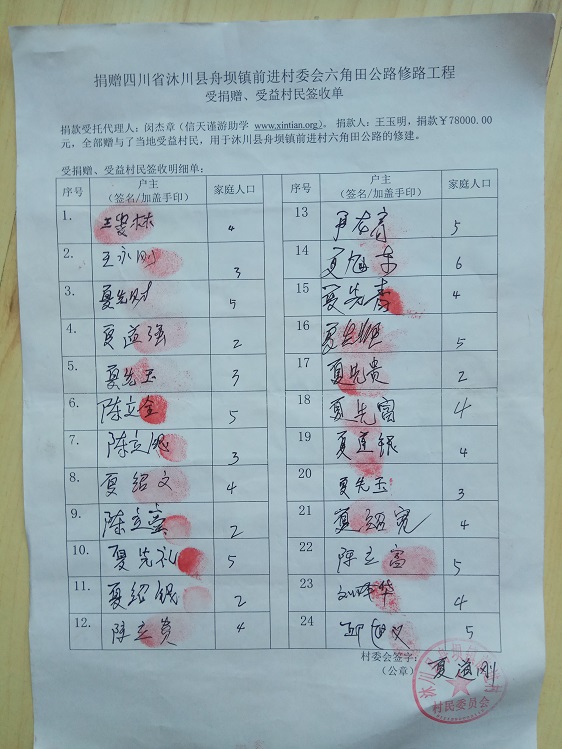 捐赠四川省沐川县舟坝镇前进村委会六角田公路修路工程
受捐赠、受益村民签收单
捐款受托代理人：闵杰章（信天谨游助学 www.xintian.org）。 捐款人：王玉明，捐款￥78000.00
元，全部赠与了当地受益村民，用于沐川县舟坝镇前进村六角田公路的修建。
受捐赠、受益村民签收明细单：
序号 户主（签名/加盖手印） 家庭人口
1. 4
2. 王永刚 3
3. 夏先财 5
4. 夏益强 2
5. 夏先玉 3
6. 陈立全 5
7. 3
8. 夏绍文 4
9. 2
10. 夏先礼 5
11. 夏绍银 2
12. 4
序号 户主（签名/加盖手印） 家庭人口
13 5
14 6
15 4
16 5
17 夏先贵 2
18 夏先富 4
19 4
20 夏先玉 3
21 4
22 陈立富 5
23 4
24 5
村委会签字：
（公章）
村民委员会